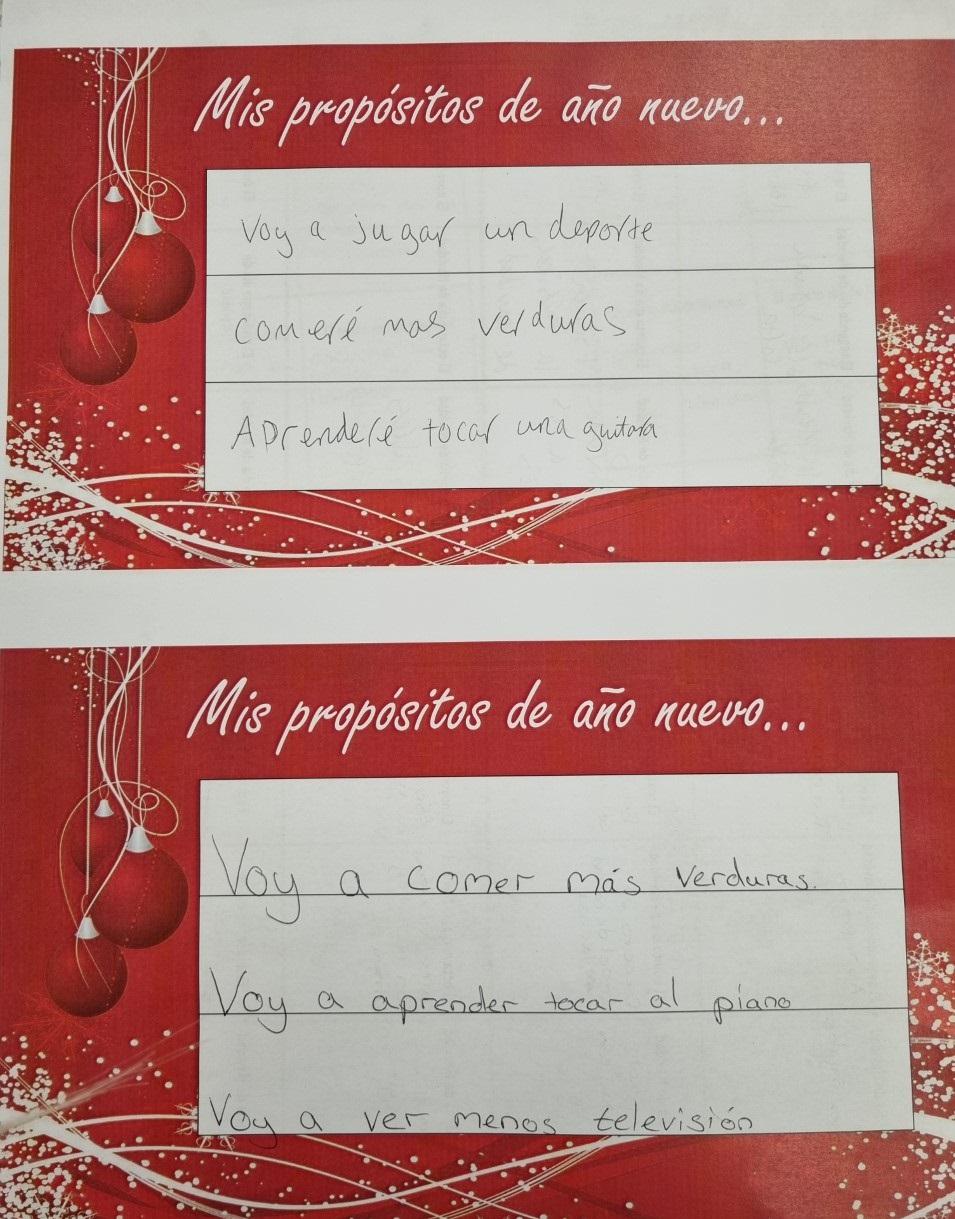 Mis propósitos de año nuevo...
Voy a jugar un deporte
comeré mas verduras
Aprenderé tocar una guitara
Mis propósitos de año nuevo...
Voy a comer más verduras.
Voy a aprender tocar al piano
Voy a ver menos televisión